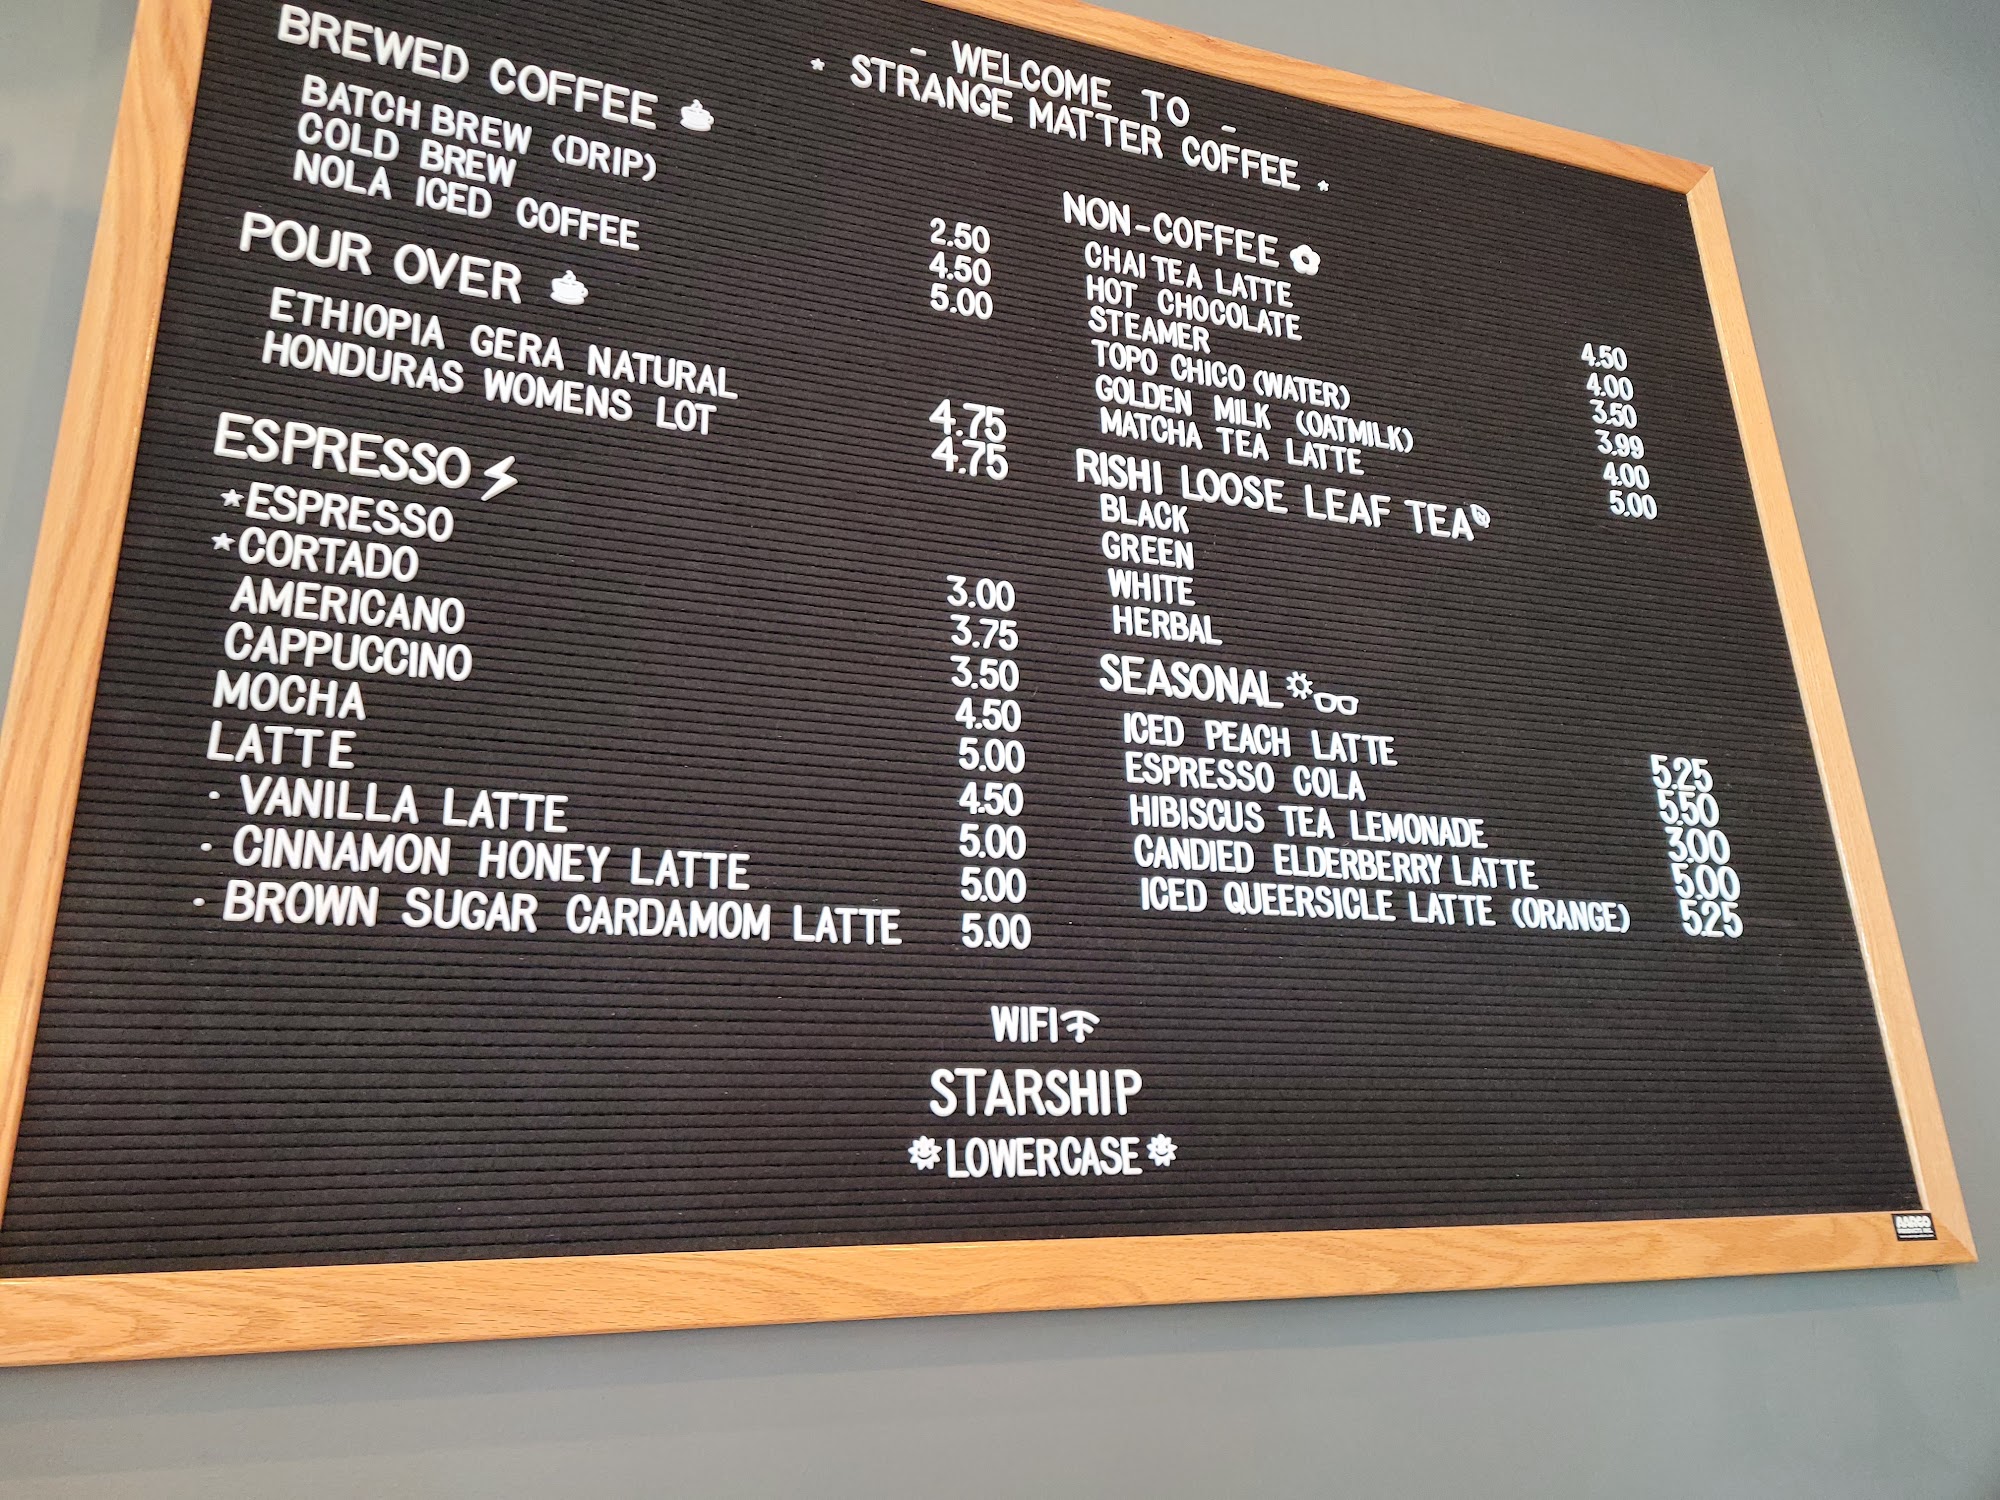 - WELCOME TO -
* STRANGE MATTER COFFEE *
BREWED COFFEE
BATCH BREW (DRIP) 2.50
COLD BREW 4.50
NOLA ICED COFFEE 5.00
POUR OVER
ETHIOPIA GERA NATURAL 4.75
HONDURAS WOMENS LOT 4.75
ESPRESSO
*ESPRESSO 3.00
*CORTADO 3.75
AMERICANO 3.50
CAPPUCCINO 4.50
MOCHA 5.00
LATTE 4.50
· VANILLA LATTE 5.00
· CINNAMON HONEY LATTE 5.00
· BROWN SUGAR CARDAMOM LATTE 5.00
NON-COFFEE
CHAI TEA LATTE 4.50
HOT CHOCOLATE 4.00
STEAMER 3.50
TOPO CHICO (WATER) 3.99
GOLDEN MILK (OATMILK) 4.00
MATCHA TEA LATTE 5.00
RISHI LOOSE LEAF TEA
BLACK
GREEN
WHITE
HERBAL
SEASONAL
ICED PEACH LATTE 5.25
ESPRESSO COLA 5.50
HIBISCUS TEA LEMONADE 3.00
CANDIED ELDERBERRY LATTE 5.00
ICED QUEERSICLE LATTE (ORANGE) 5.25
WIFI
STARSHIP
LOWERCASE
AARCO